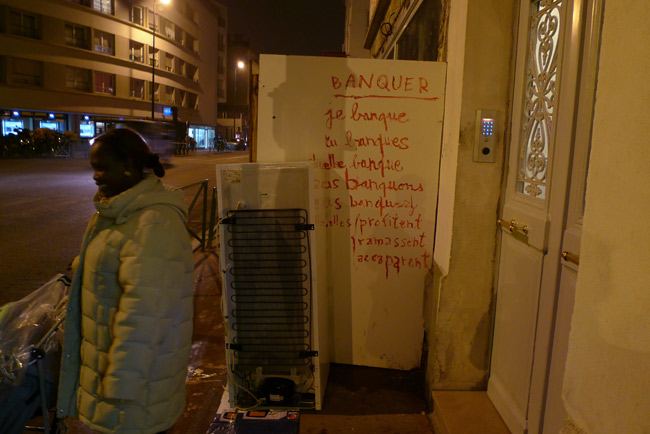 BANQUER
je banque
tu banques
elle banque
banquons
banquez
elles/profitent
ramassent
accaparent